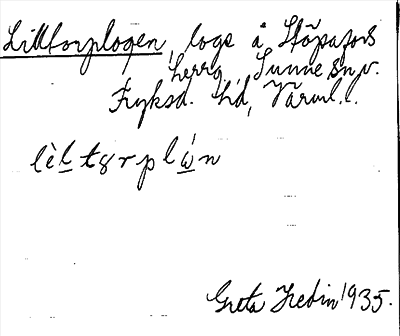 Lilltorplogen, loge å Stöpafors
herrg., Sunne sn,
Fryksd. hd, Värml. l.
lèltɤrplώn
Greta Hedin 1935.